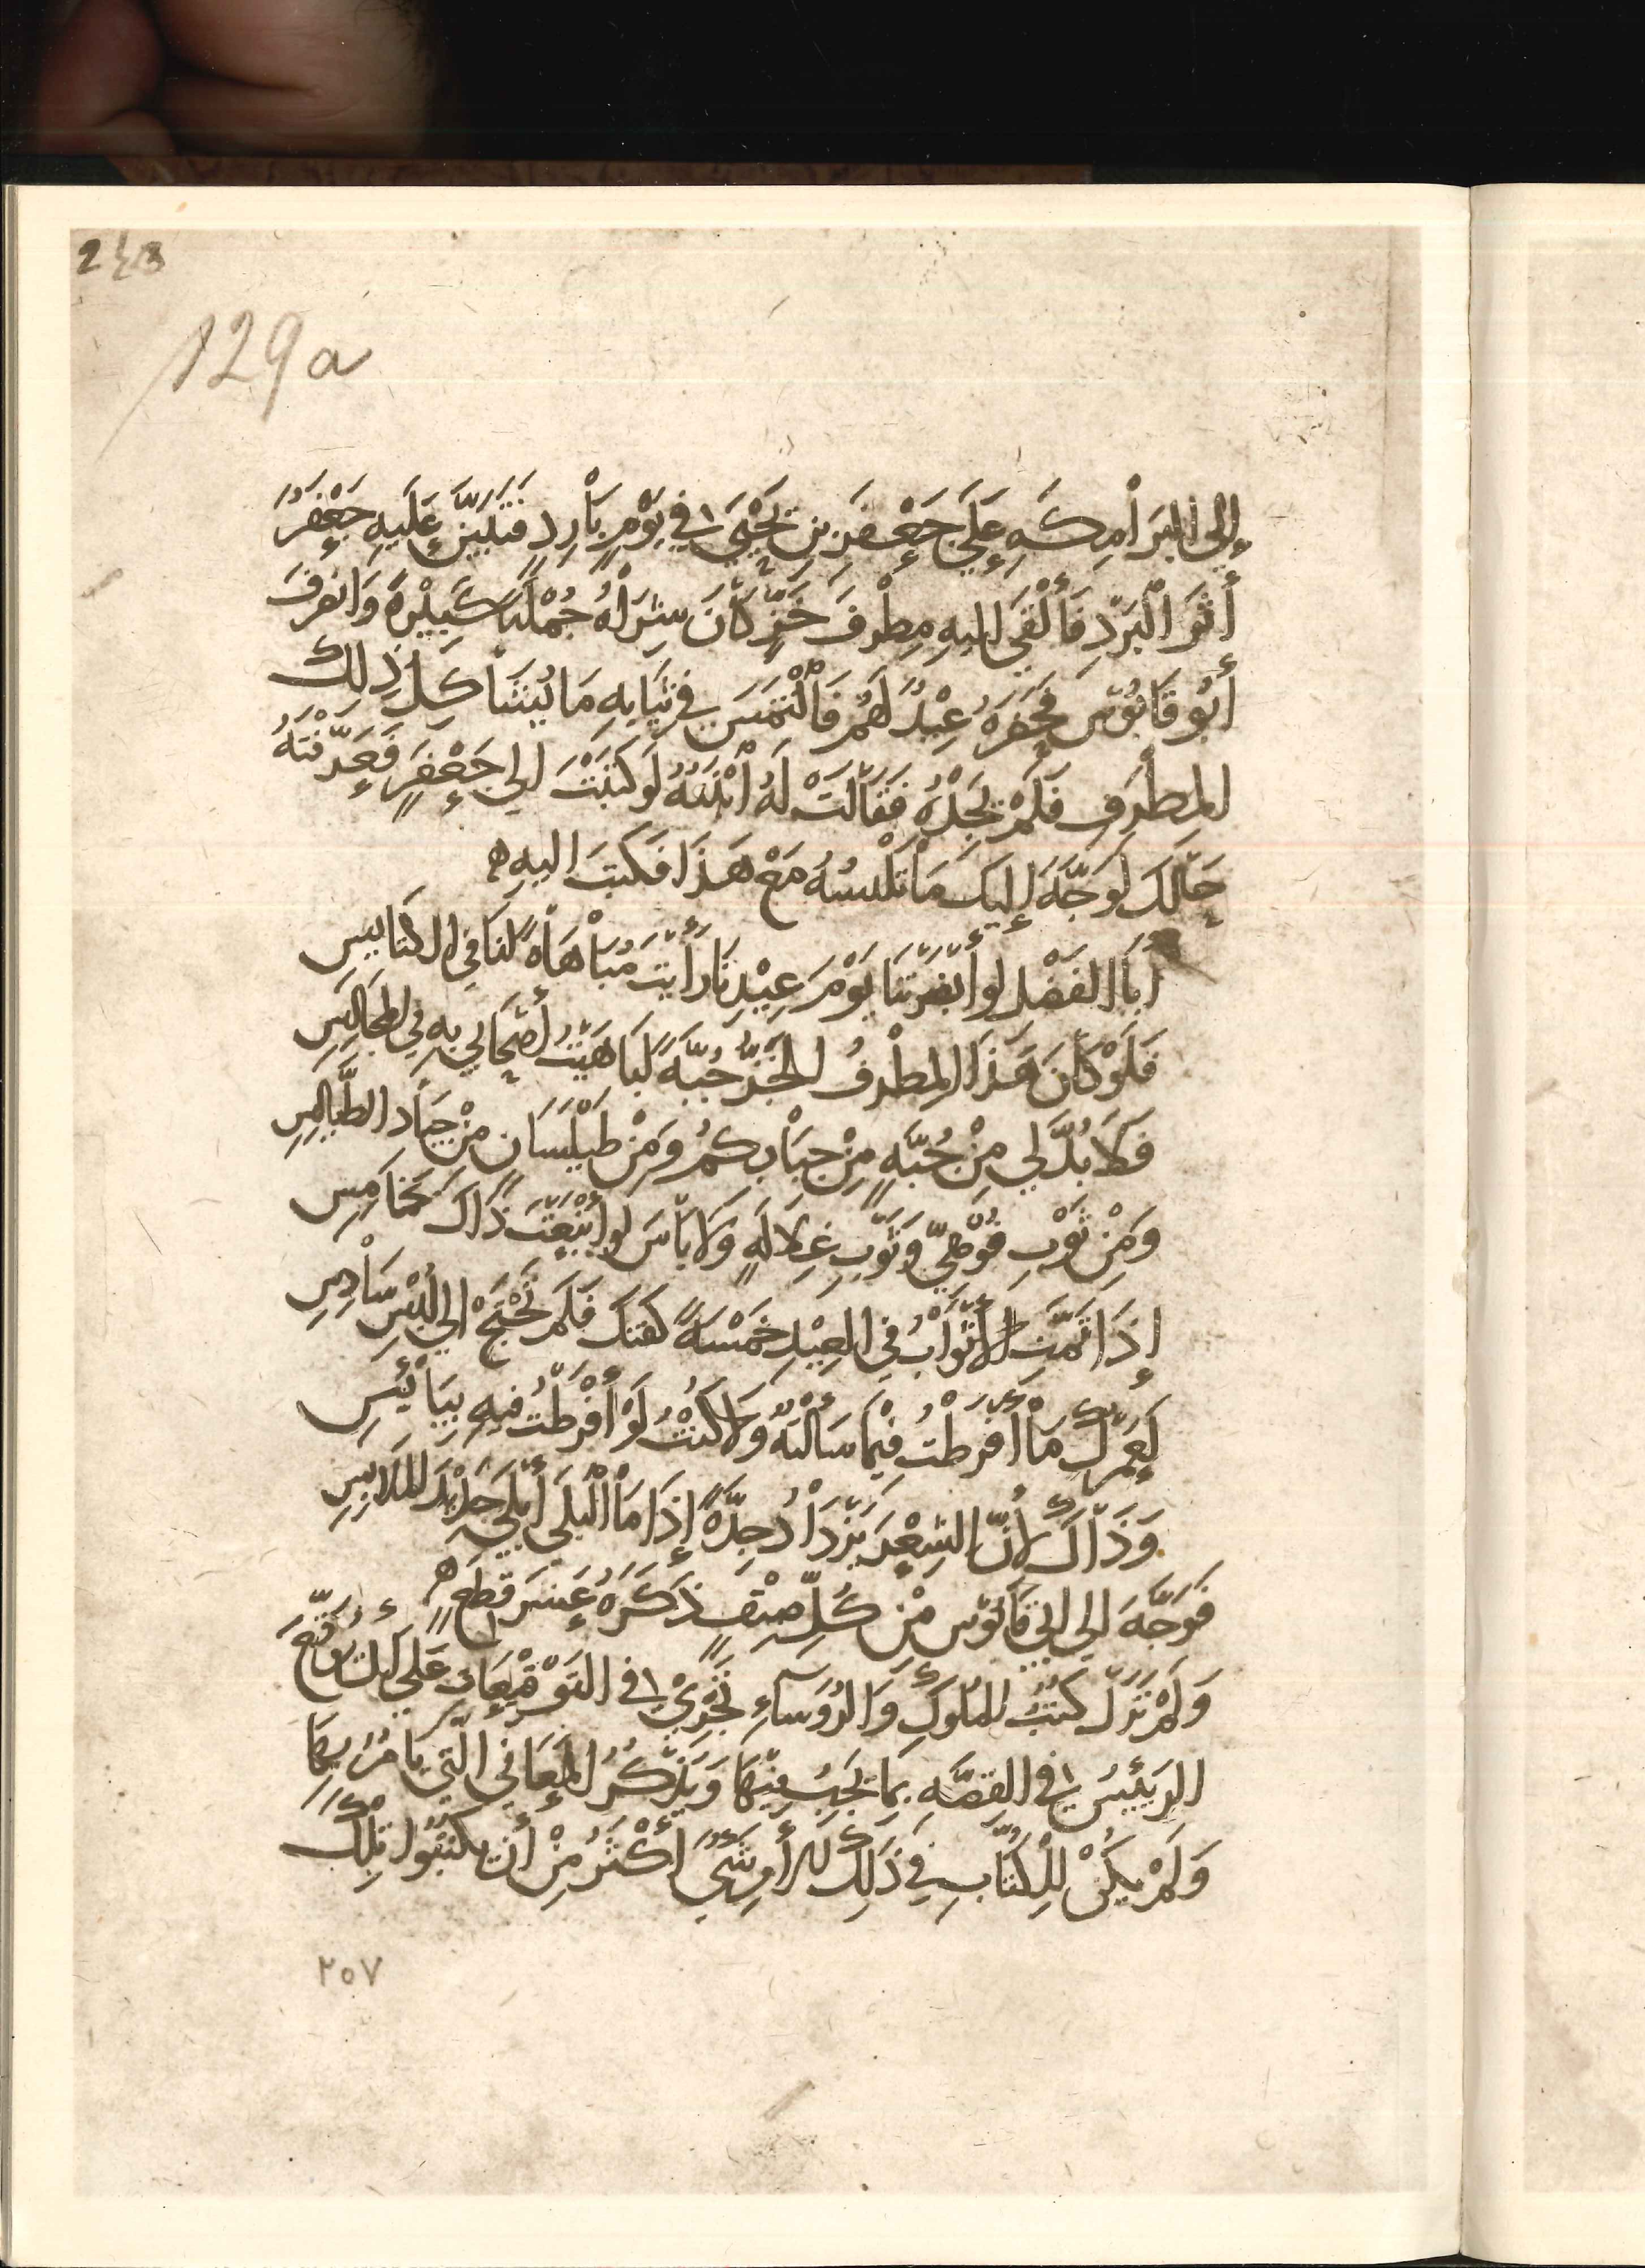 243
129a
إِلي البَرَامِكَهِ عَلَي جَعْفَرَ بنِ يَحْيَي في يَوْمٍ بَارِدٍ فَتَبَيَّنَ عَلَيهِ جَعْفَرُ
أَثَرَ الْبَرْدِ فَأَلْقَي اليهِ مِطْرَفَ خَزٍّ كَانَ شِرَاهُ جُمْلَةً كَبِيْرَةً وَانصَرَفَ
أَبُو قَابُوْس فَحَضَرَهُ عِيْدٌ لَهُم فَالْتَمَسَ في ثِيَابِهِ مَا يُشَاكِلُ ذلِكَ
المِطْرَفَ فَلَمْ يَجِدْهُ فَقَالَتْ لَهُ ابْنَتُهُ لَو كَتَبْتَ الي جَعْفَرٍ فَعَرَّفْتَهُ
حَالَكَ لَوَجَّهَ إِليكَ مَا تَلْبسُهُ مَعَ هَذَا فَكَتبَ اليهِ ه
أَبَا الفَضْلِ لو أَبْصَرْتَنَا يَوْمَ عِيْدِنَا رَأَيتَ مُبَاهَاةً لنَا في الكنَايسِ
فَلَوْ كَانَ هَذَا المِطْرفُ الخَزُّ جُبَّةً لَبَاهَيْتُ أَصْحَابي بِهِ في المَجَالِسِ
فَلَا بُدَّ لي مِنْ جُبَّهٍ مِنْ جِبَابِكمُ وَمِنْ طَيْلَسَانٍ مِنْ جِيَادِ الطَّيَالِسِ
وَمِنْ ثَوْبِ قُوْهِيٍّ وَثَوْبِ غِلَالَهٍ وَلَا بَأسَ لو أَتْبَعْتَ ذَاكَ بخَامِسِ
إِذَا تَمَّتِ الأَثْوَابُ في العِيْدِ خَمْسَةً كَفتكَ فَلَم تَحْتَجْ الي لُبْسِ سَادِسِ
لَعَمْرُكَ مَا أَفرَطْتُ فِيْمَا سَأَلْتهُ وَلَا كنْتُ لَوْ أَفْرَطْتُ فيهِ بِيَائِسِ
وَذَاكَ لأَنَّ الشِعْرَ يَزْدَادُ جِدَّةً إِذَا مَا الْبلَي أَبْلَي جَدْيدَ المَلَابِسِ
فَوَجَّهَ الي ابي قَابُوْس مِنْ كُلِّ صِنْفٍ ذَكَرَهُ عَشر قِطَعٍ ه
وَلَمْ تَزَلْ كتُبُ المُلُوكِ وَالرُوَسَاءِ تَجْرِيْ في التَوْقِيْعَاتِ عَلَي أَنْ يُوَقِّعَ
الرَئِيسُ في القصَّهِ بمَا يَجِبُ فِيْهَا وَيَذْكُرُ المَعَاني الّتي يَامُرُ بِهَا
وَلَمْ يكُنْ لِلْكتَّابِ في ذَلِكَ أَمْرٌ شَيٌ أَكْثَرُ مِنْ أَنْ يكتبُوا تِلْكَ
٢٥٧